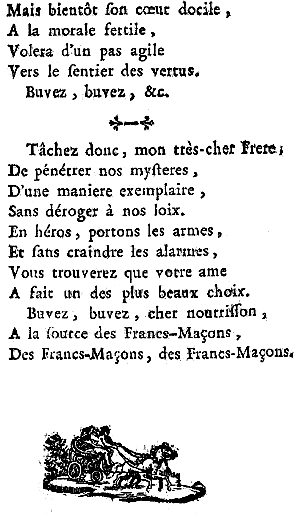 Mais bientôt ſon cœur docile,
A la morale fertile,
Volera d'un pas agile
Vers le ſentier des vertus.
Buvez, buvez, &c.
Tâchez donc, mon très-cher Frere,
De pénétrer nos myſteres,
D'une maniere exemplaire,
Sans déroger à nos loix.
En héros, portons les armes,
Et ſans craindre les alarmes,
Vous trouverez que votre ame
A fait un des plus beaux choix.
Buvez, buvez, cher nourriſſon,
A la ſource des Francs-Maçons,
Des Francs-Maçons, des Francs-Maçons.